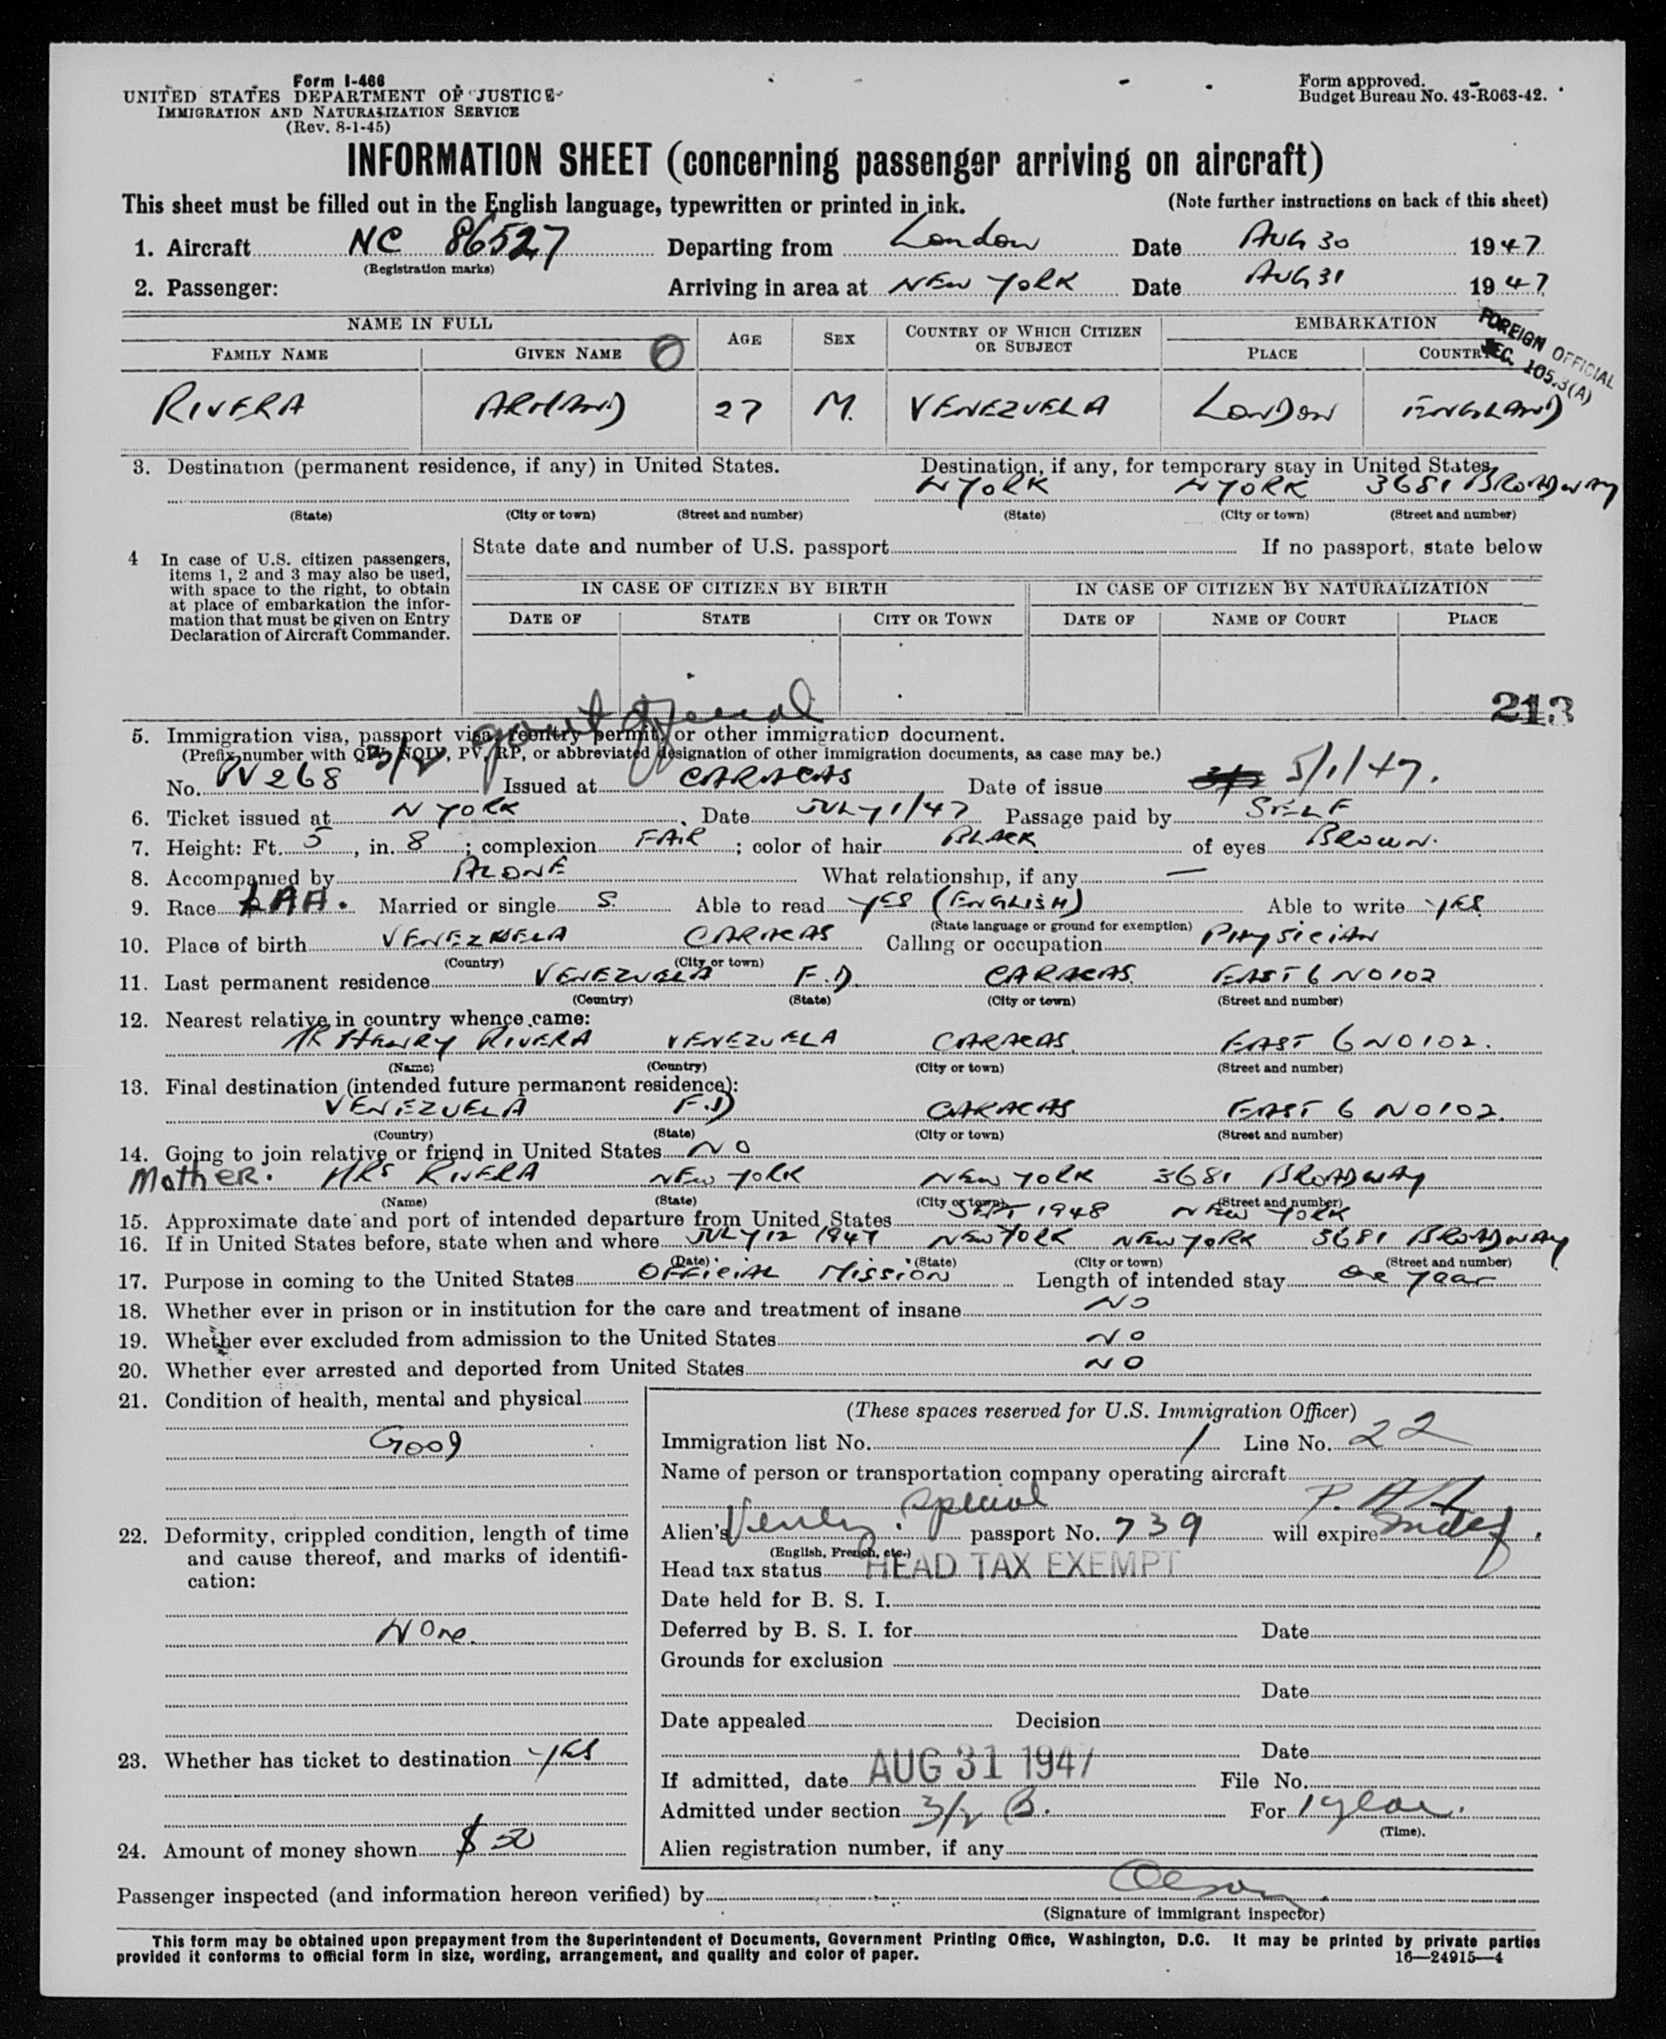 Form I-466
UNITED STATES DEPARTMENT OF JUSTICE
IMMIGRATION AND NATURALIZATION SERVICE
(Rev. 8-1-45)
Form approved.
Budget Bureau No. 43-R063-42.
INFORMATION SHEET (concerning passenger arriving on aircraft)
This sheet must be filled out in the English language, typewritten or printed in ink. (Note further instructions on back of this sheet)
1. Aircraft NC 86527 Departing from London Date AUG 30 1947
(Registration marks)
2. Passenger: Arriving in area at NEW YORK Date AUG 31 1947
NAME IN FULL AGE SEX COUNTRY OF WHICH CITIZEN OR SUBJECT EMBARKATION
FAMILY NAME GIVEN NAME PLACE COUNTRY
FOREIGN OFFICIAL
SEC. 105.3(A)
RIVERA ARMAND 27 M. VENEZUELA LONDON ENGLAND
3. Destination (permanent residence, if any) in United States. Destination, if any, for temporary stay in United States
N YORK N YORK 3681 BROADWAY
(State) (City or town) (Street and number) (State) (City or town) (Street and number)
4 In case of U.S. citizen passengers, items 1, 2 and 3 may also be used, with space to the right, to obtain at place of embarkation the information that must be given on Entry Declaration of Aircraft Commander.
State date and number of U.S. passport If no passport, state below
IN CASE OF CITIZEN BY BIRTH IN CASE OF CITIZEN BY NATURALIZATION
DATE OF STATE CITY OR TOWN DATE OF NAME OF COURT PLACE
213
govt official
5. Immigration visa, passport visa, reentry permit, or other immigration document.
(Prefix number with QIV, NQIV, PV, RP, or abbreviated designation of other immigration documents, as case may be.)
3/2
No. PV 268 Issued at CARACAS Date of issue 5/1/47.
6. Ticket issued at N YORK Date JULY 1/47 Passage paid by SELF
7. Height: Ft. 5, in. 8; complexion FAIR; color of hair BLACK of eyes BROWN.
8. Accompanied by ALONE What relationship, if any —
9. Race LAA. Married or single S. Able to read YES (ENGLISH) Able to write YES
(State language or ground for exemption)
10. Place of birth VENEZUELA CARACAS Calling or occupation PHYSICIAN
(Country) (City or town)
11. Last permanent residence VENEZUELA F.D CARACAS. EAST 6 NO 102
(Country) (State) (City or town) (Street and number)
12. Nearest relative in country whence came:
MR HENRY RIVERA VENEZUELA CARACAS. EAST 6 NO 102.
(Name) (Country) (City or town) (Street and number)
13. Final destination (intended future permanent residence):
VENEZUELA F.D CARACAS EAST 6 NO 102.
(Country) (State) (City or town) (Street and number)
14. Going to join relative or friend in United States NO
MOTHER. MRS RIVERA NEW YORK NEW YORK 3681 BROADWAY
(Name) (State) (City or town) (Street and number)
15. Approximate date and port of intended departure from United States SEPT 1948 NEW YORK
16. If in United States before, state when and where JULY 12 1947 NEW YORK NEW YORK 3681 BROADWAY
(Date) (State) (City or town) (Street and number)
17. Purpose in coming to the United States OFFICIAL MISSION Length of intended stay One year
18. Whether ever in prison or in institution for the care and treatment of insane NO
19. Whether ever excluded from admission to the United States NO
20. Whether ever arrested and deported from United States NO
21. Condition of health, mental and physical
Good
22. Deformity, crippled condition, length of time and cause thereof, and marks of identification:
None.
23. Whether has ticket to destination YES
24. Amount of money shown $ 50
(These spaces reserved for U.S. Immigration Officer)
Immigration list No. 1 Line No. 22
Name of person or transportation company operating aircraft
special P. A. A.
Alien's Venez. passport No. 739 will expire indef
(English, French, etc.)
Head tax status HEAD TAX EXEMPT
Date held for B. S. I.
Deferred by B. S. I. for Date
Grounds for exclusion
Date
Date appealed Decision
Date
If admitted, date AUG 31 1947 File No.
Admitted under section 3/2 B. For 1 year.
(Time).
Alien registration number, if any
Passenger inspected (and information hereon verified) by Olson
(Signature of immigrant inspector)
This form may be obtained upon prepayment from the Superintendent of Documents, Government Printing Office, Washington, D.C. It may be printed by private parties
provided it conforms to official form in size, wording, arrangement, and quality and color of paper. 16—24915—4